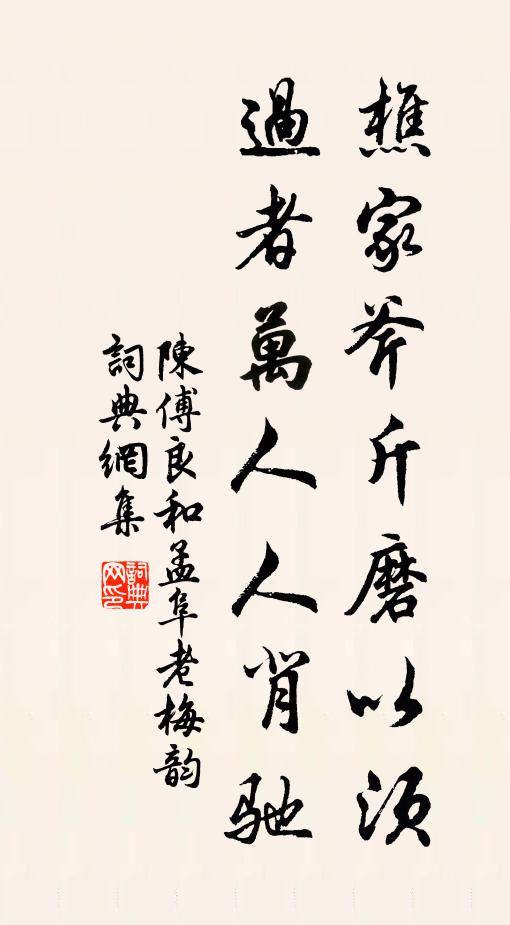 樵家斧斤磨以須
過者萬人人背馳
陳傅良和孟阜老梅韵
詞典網集
詞典
网印